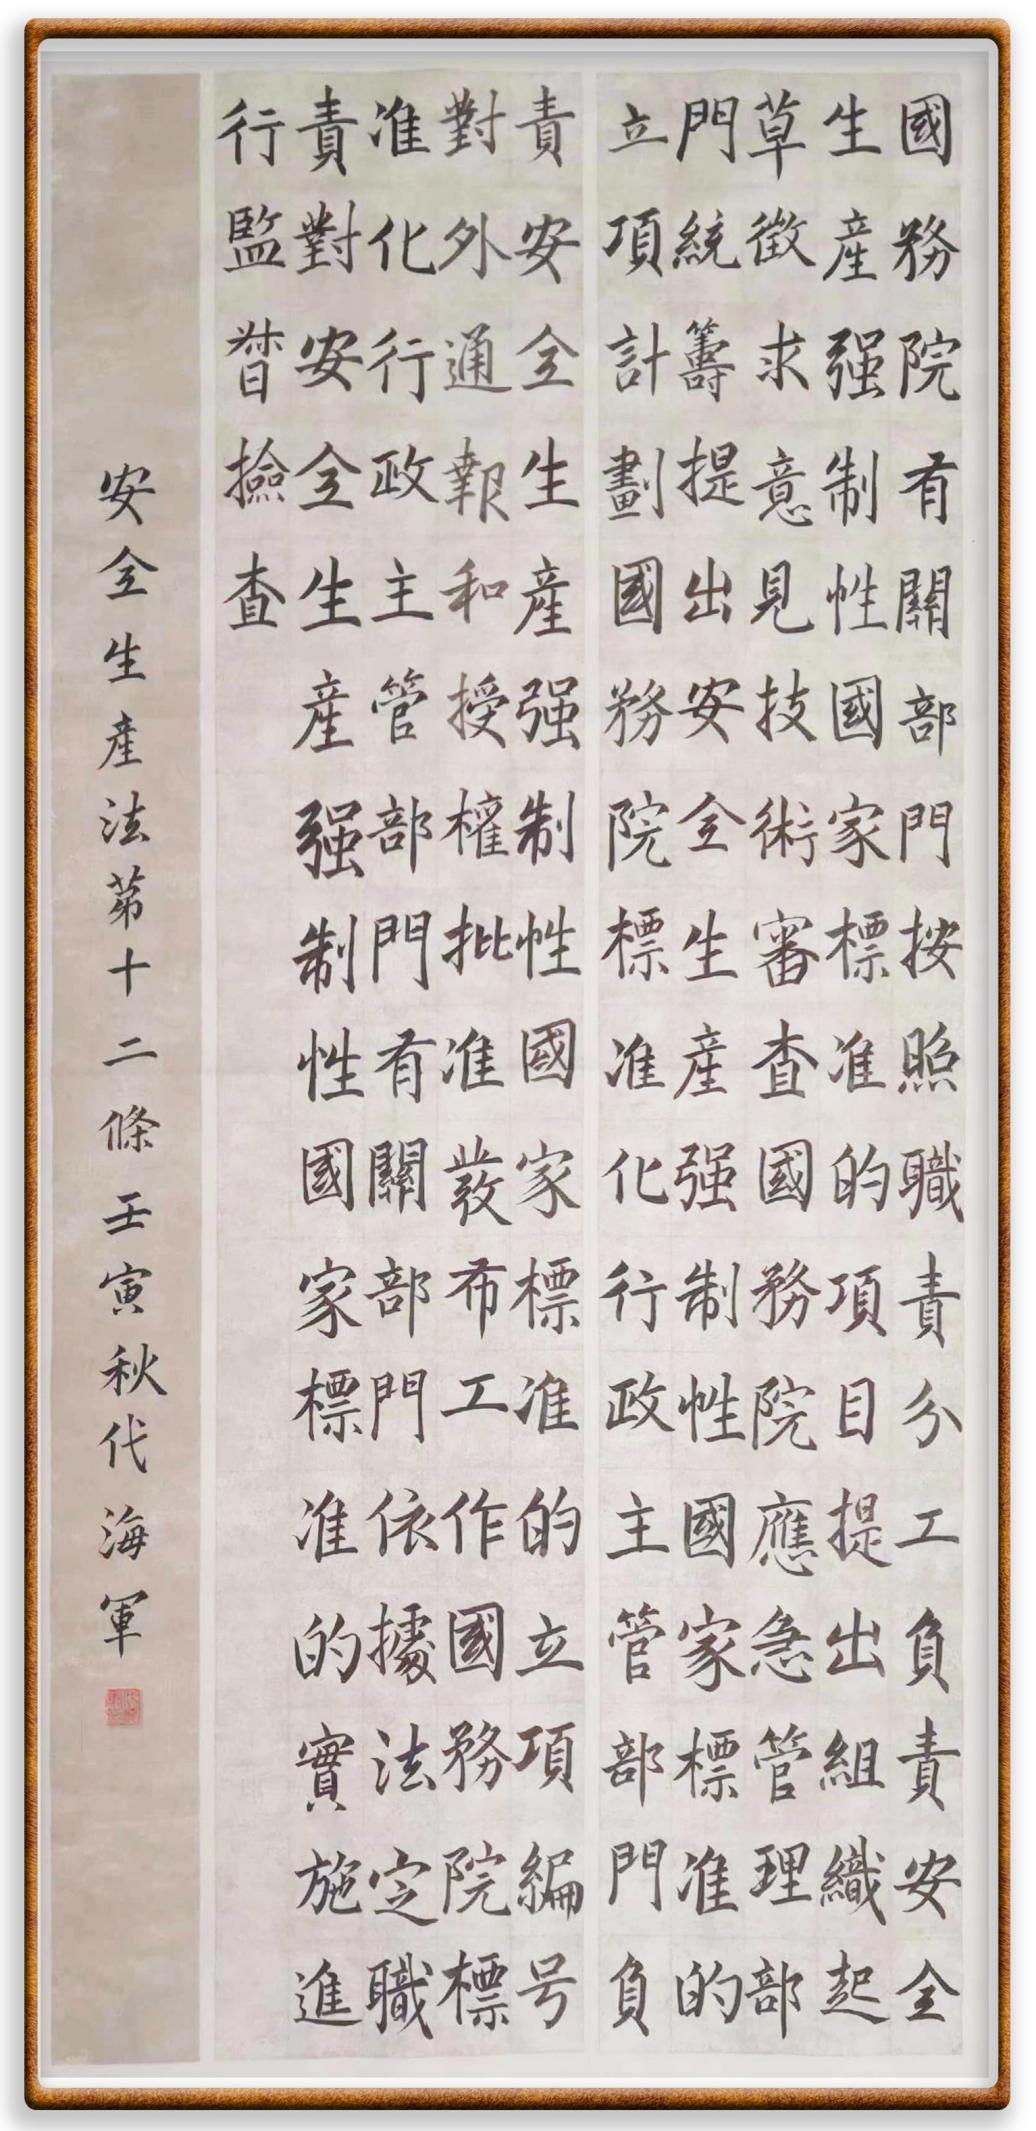 國務院有關部門按照職責分工負責安全
生産强制性國家標准的項目提出組織起
草徵求意見技術審査國務院應急管理部
門統籌提出安全生産强制性國家標准的
立項計劃國務院標准化行政主管部門負
責安全生産强制性國家標准的立項編号
對外通報和授權批准發布工作國務院標
准化行政主管部門有關部門依據法定職
責對安全生産强制性國家標准的實施進
行監督撿査
安全生産法第十二條壬寅秋代海軍